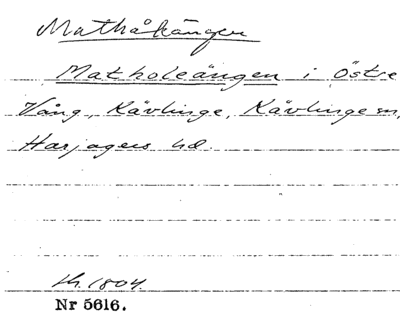 Mathåkängen
Matholeängen i Östre
Vång, Kävlinge, Kävlinge sn,
Harjagers hd.
1804.
Nr 5616.